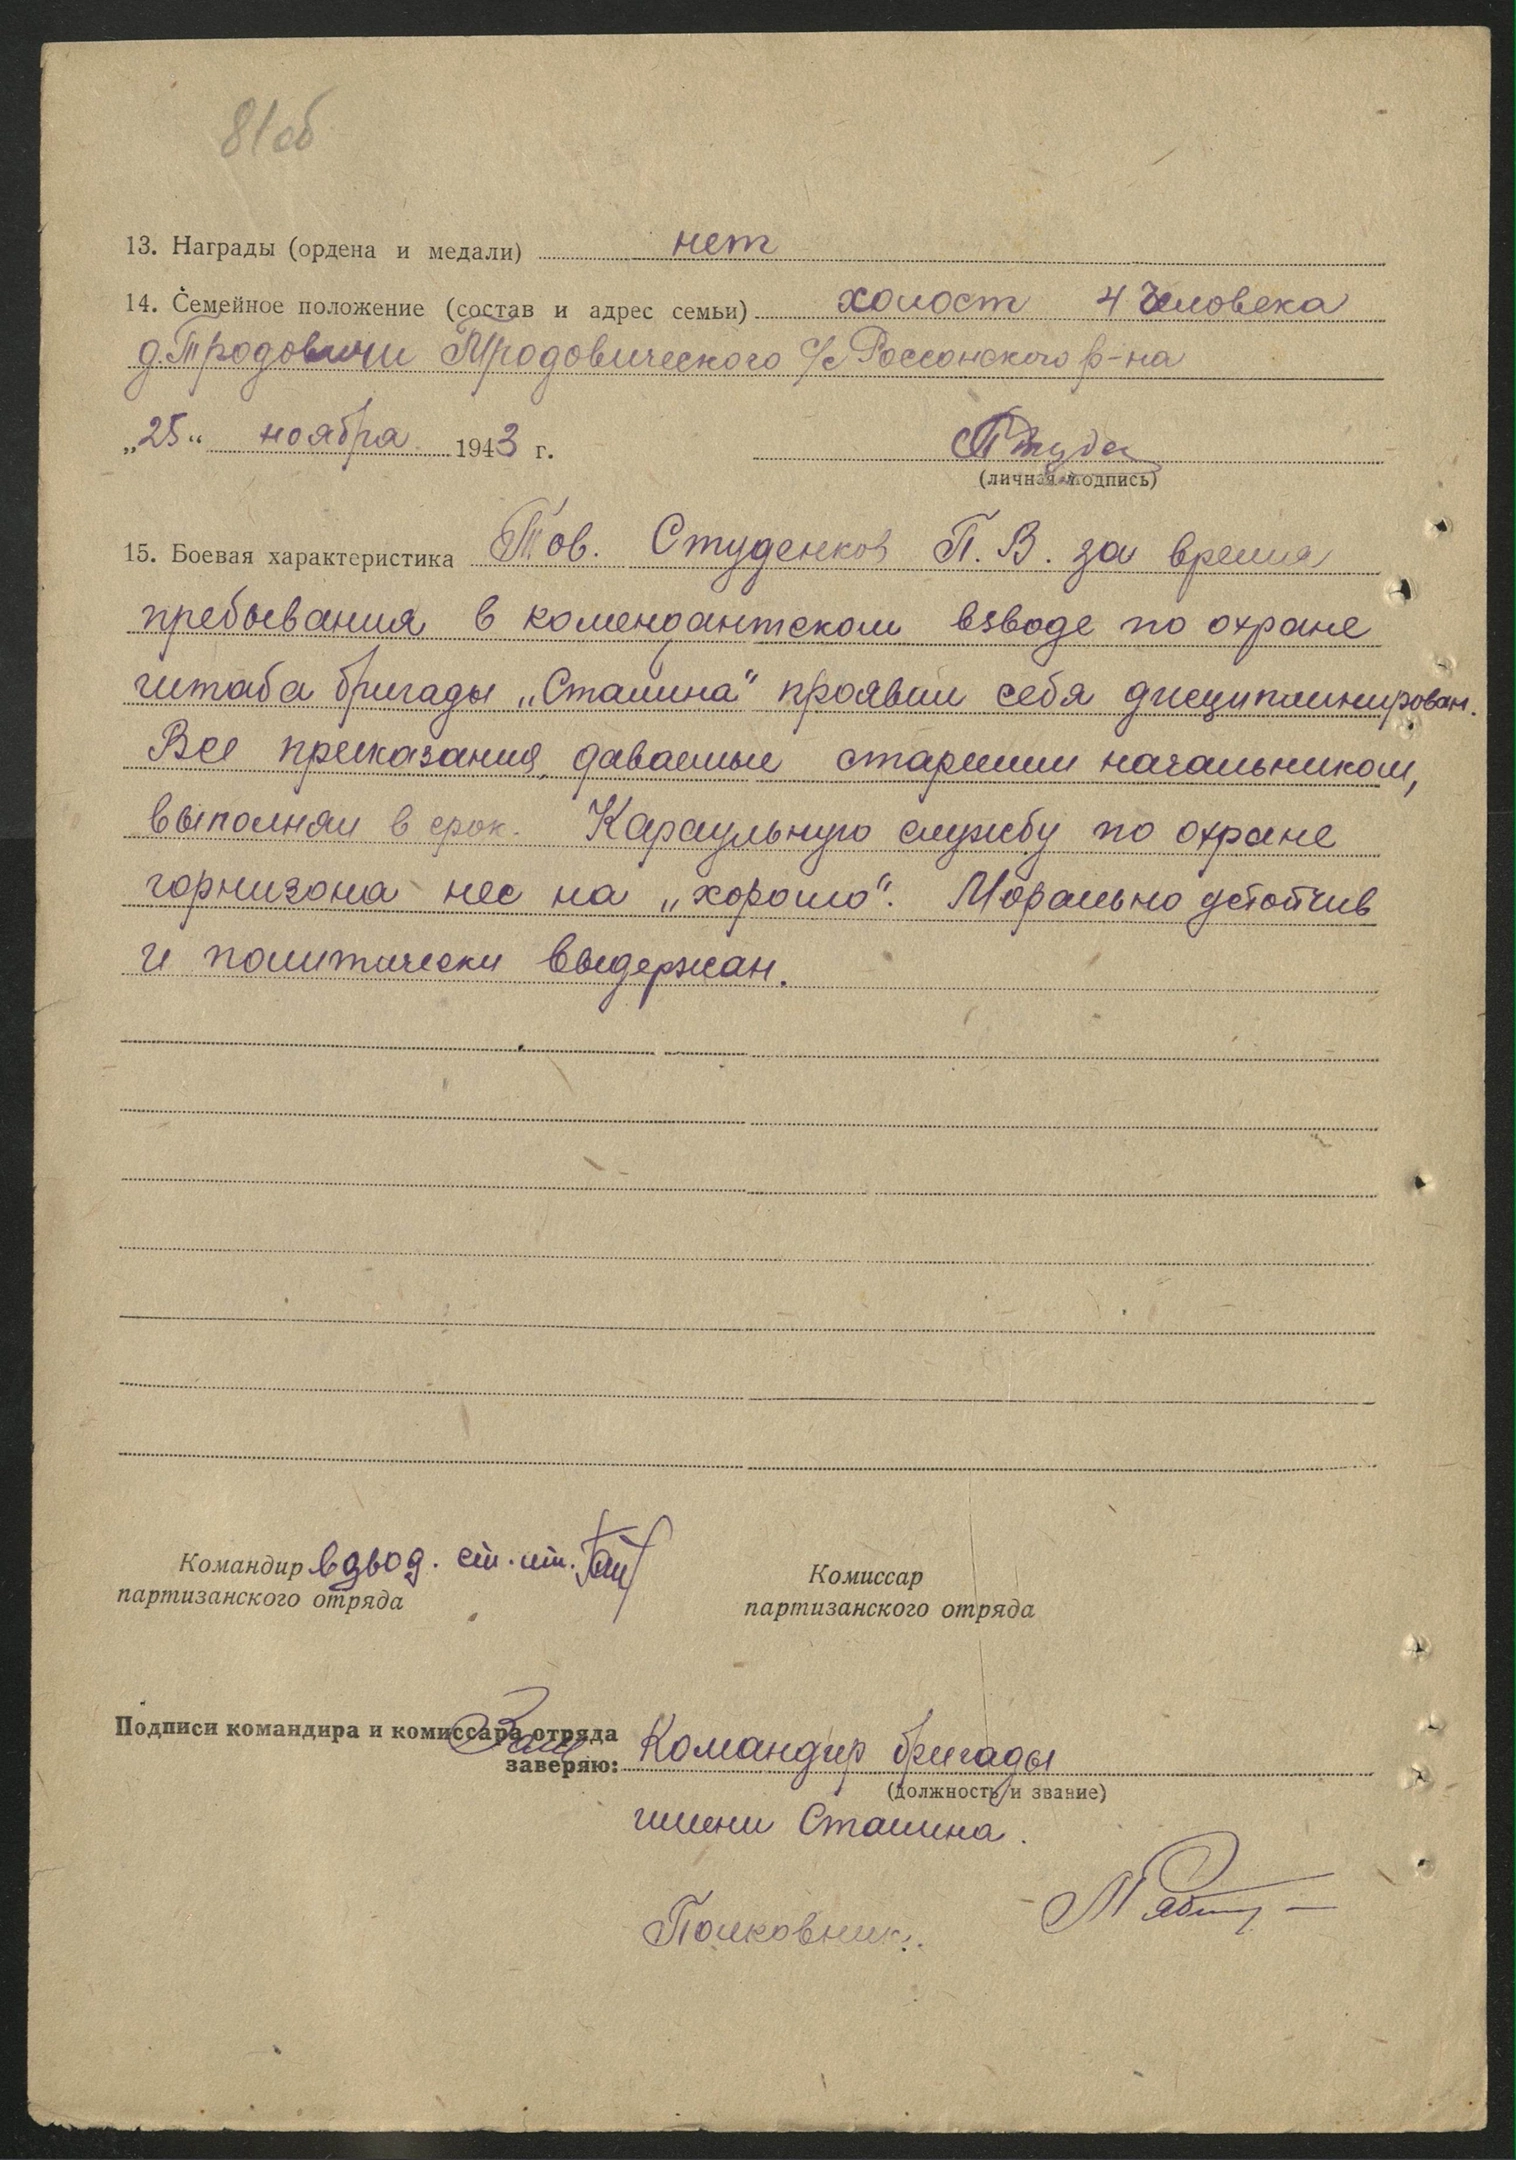 81об
13. Награды (ордена и медали) нет
14. Семейное положение (состав и адрес семьи) холост 4 человека
д. Тродовичи Тродовического с/с Россонского р-на
„25“ ноября 1943 г.
(личная подпись)
15. Боевая характеристика Тов. Студенков П. В. за время
пребывания в комендантском взводе по охране
штаба бригады „Сталина“ проявил себя дисциплинирован.
Все приказания, даваемые старшим начальником,
выполнял в срок. Караульную службу по охране
горнизона нес на „хорошо“. Морально устойчив
и политически выдержан.
Командир взвод. ст. лт.
партизанского отряда
Комиссар
партизанского отряда
Подписи командира и комиссара отряда
заверяю: Зам Командир бригады
(должность и звание)
имени Сталина.
Полковник.